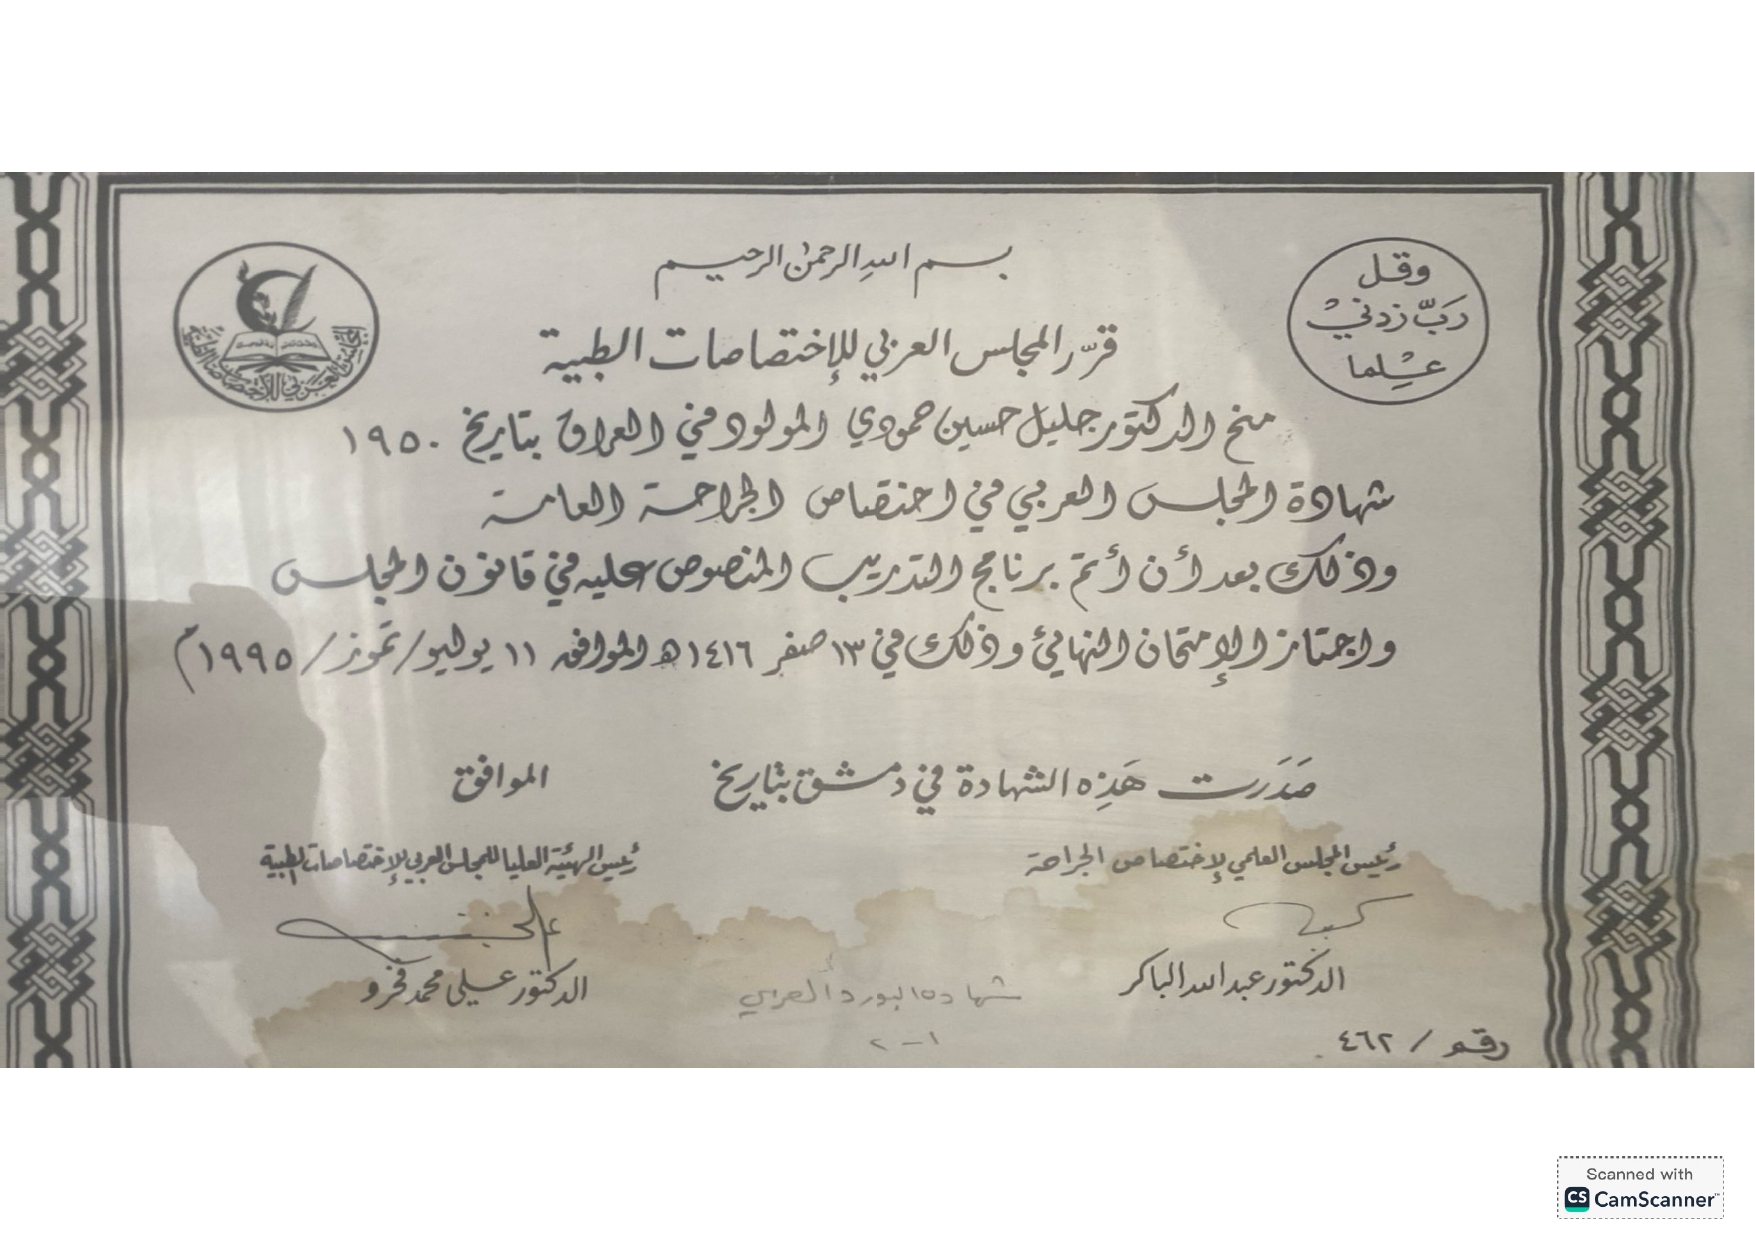 بسم الله الرحمن الرحيم
وقل
رَبّ زدني
علما
قرّر المجلس العربي للإختصاصات الطبية
منح الدكتور جليل حسين حمودي المولود في العراق بتاريخ ١٩٥٠
شهادة المجلس العربي في اختصاص الجراحة العامة
وذلك بعد أن أتم برنامج التدريب المنصوص عليه في قانون المجلس
واجتاز الإمتحان النهائي وذلك في ١٣ صفر ١٤١٦ هـ الموافق ١١ يوليو/تموز/١٩٩٥م
صَدَرت هَذِه الشهادة في دمشق بتاريخ الموافق
رئيس المجلس العلمي لإختصاص الجراحة
رئيس الهيئة العليا للمجلس العربي للإختصاصات الطبية
الدكتور عبد الله الباكر
الدكتور علي محمد فخرو
شهادة البورد العربي
١-٢
رقم / ٤٦٢
المجلس العربي للإختصاصات الطبية
Scanned with
CS CamScanner™